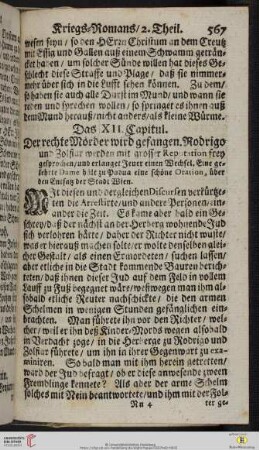 Kriegs-Romans/2. Theil. 567
wesen seyn / so den HErrn Christum an dem Creutz
mit Essig und Gallen auß einem Schwamm geträn-
cket haben / um solcher Sünde willen hat dieses Ge-
schlecht diese Straffe und Plage / daß sie nimmer-
mehr über sich in die Lufft sehen können. Zu dem/
so haben sie auch alle Tag Würm im Mund/ und wann sie
reden und sprechen wollen / so springet es ihnen auß
dem Mund herauß/ nicht anders/ als kleine Würme.
Das XII. Capitul.
Der rechte Mörder wird gefangen. Rodrigo
und Zolsiar werden mit grosser Reputation frey
gesprochen/ und erlanget Jener einen Wechsel. Eine ge-
lehrte Dame hält zu Padua eine schöne Oration, über
den Entsatz der Stadt Wien.
MIt diesen und dergleichen Discursen verkürtze-
ten die Arrestirte/ und andere Personen/ ein-
ander die Zeit. Es kame aber bald ein Ge-
schrey/ daß der nächst an der Herberg wohnende Jud
sich verlohren hätte / daher der Richter nicht wuste/
was er hierauß machen solte/ er wolte denselben glei-
cher Gestalt / als einen Ermordeten / suchen lassen/
aber etliche in die Stadt kommende Bauren berich-
teten/ daß ihnen dieser Jud auf dem Feld in vollem
Lauff zu Fuß begegnet wäre/ weßwegen man ihm al-
sobald etliche Reuter nachschickte / die den armen
Schelmen in wenigen Stunden gefänglichen ein-
brachten. Man führete ihn vor den Richter / wel-
cher / weil er ihn deß Kinder-Mords wegen alsobald
in Verdacht zoge / in die Herberge zu Rodrigo und
Zolsiar führete / um ihn in ihrer Gegenwart zu exa-
miniren. So bald man mit ihm herein getretten/
ward der Jud befragt / ob er diese anwesende zween
Fremblinge kennete? Als aber der arme Schelm
solches mit Nein beantwortete/ und ihm mit der Fol-
Nn 4 ter ge-